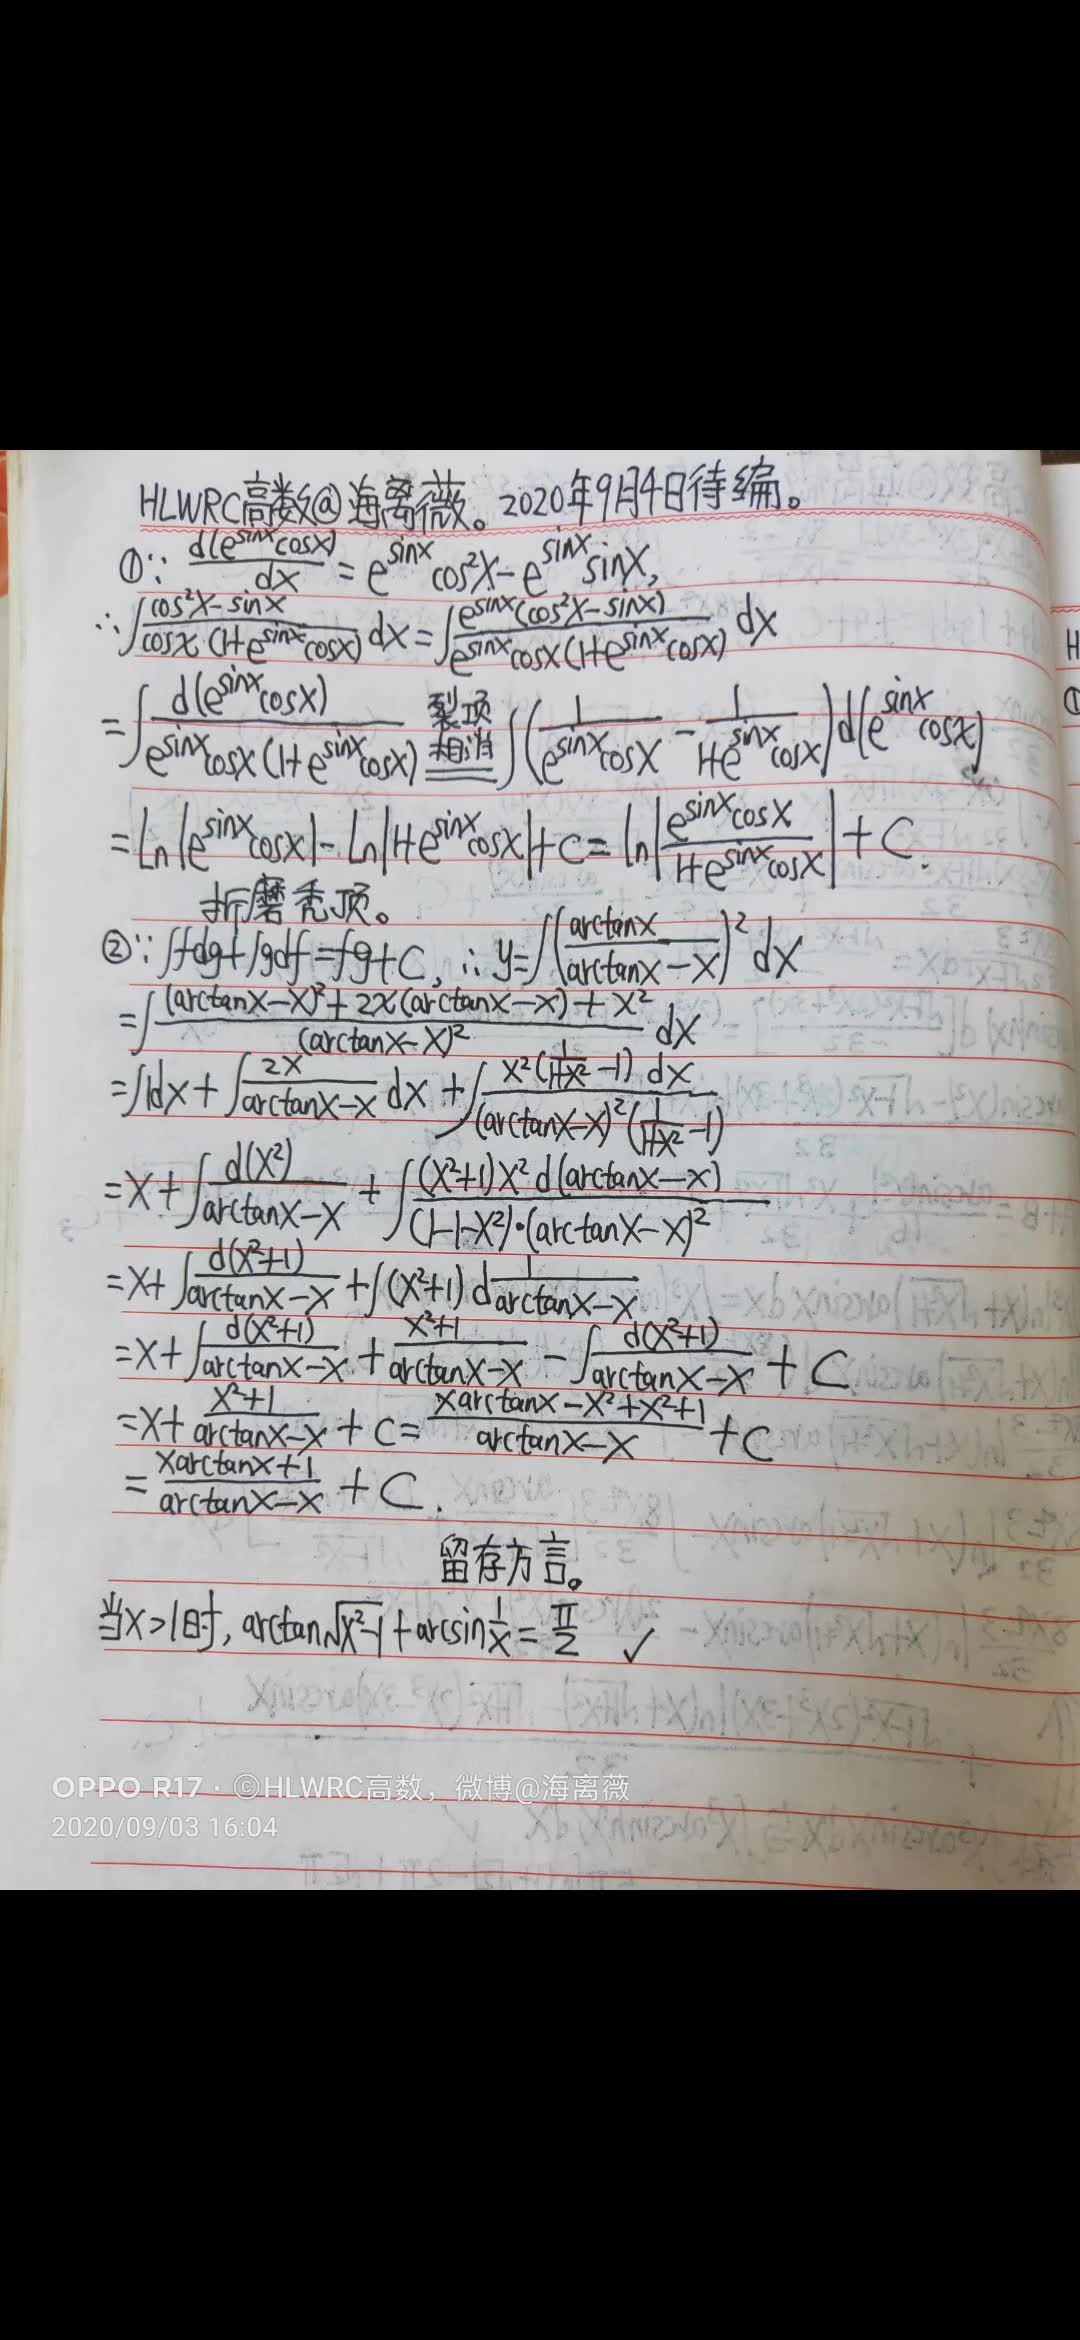 HLWRC高数@海离薇。2020年9月4日待编。
①∵ d(e^sinx cosx)/dx = e^sinx cos²x - e^sinx sinx,
∴ ∫ (cos²x - sinx)/(cosx(1+e^sinx cosx)) dx = ∫ e^sinx(cos²x - sinx)/(e^sinx cosx(1+e^sinx cosx)) dx
= ∫ d(e^sinx cosx)/(e^sinx cosx(1+e^sinx cosx)) 裂项相消 ∫ (1/(e^sinx cosx) - 1/(1+e^sinx cosx)) d(e^sinx cosx)
= Ln|e^sinx cosx| - Ln|1+e^sinx cosx| + C = ln|e^sinx cosx/(1+e^sinx cosx)| + C.
折磨秃顶。
②∵ ∫fdg+∫gdf=fg+C, ∴ y=∫(arctanx/(arctanx-x))² dx
= ∫ ((arctanx-x)²+2x(arctanx-x)+x²)/(arctanx-x)² dx
= ∫1dx + ∫ 2x/(arctanx-x) dx + ∫ x²(1/(1+x²) -1) dx/((arctanx-x)²(1/(1+x²) -1))
= x + ∫ d(x²)/(arctanx-x) + ∫ (x²+1)x² d(arctanx-x)/((1-1-x²)·(arctanx-x)²)
= x + ∫ d(x²+1)/(arctanx-x) + ∫(x²+1) d 1/(arctanx-x)
= x + ∫ d(x²+1)/(arctanx-x) + (x²+1)/(arctanx-x) - ∫ d(x²+1)/(arctanx-x) + C
= x + (x²+1)/(arctanx-x) + C = (xarctanx-x²+x²+1)/(arctanx-x) + C
= (xarctanx+1)/(arctanx-x) + C.
留存方言。
当x>1时, arctan√(x²-1) + arcsin 1/x = π/2 ✓
OPPO R17 · ©HLWRC高数，微博@海离薇
2020/09/03 16:04